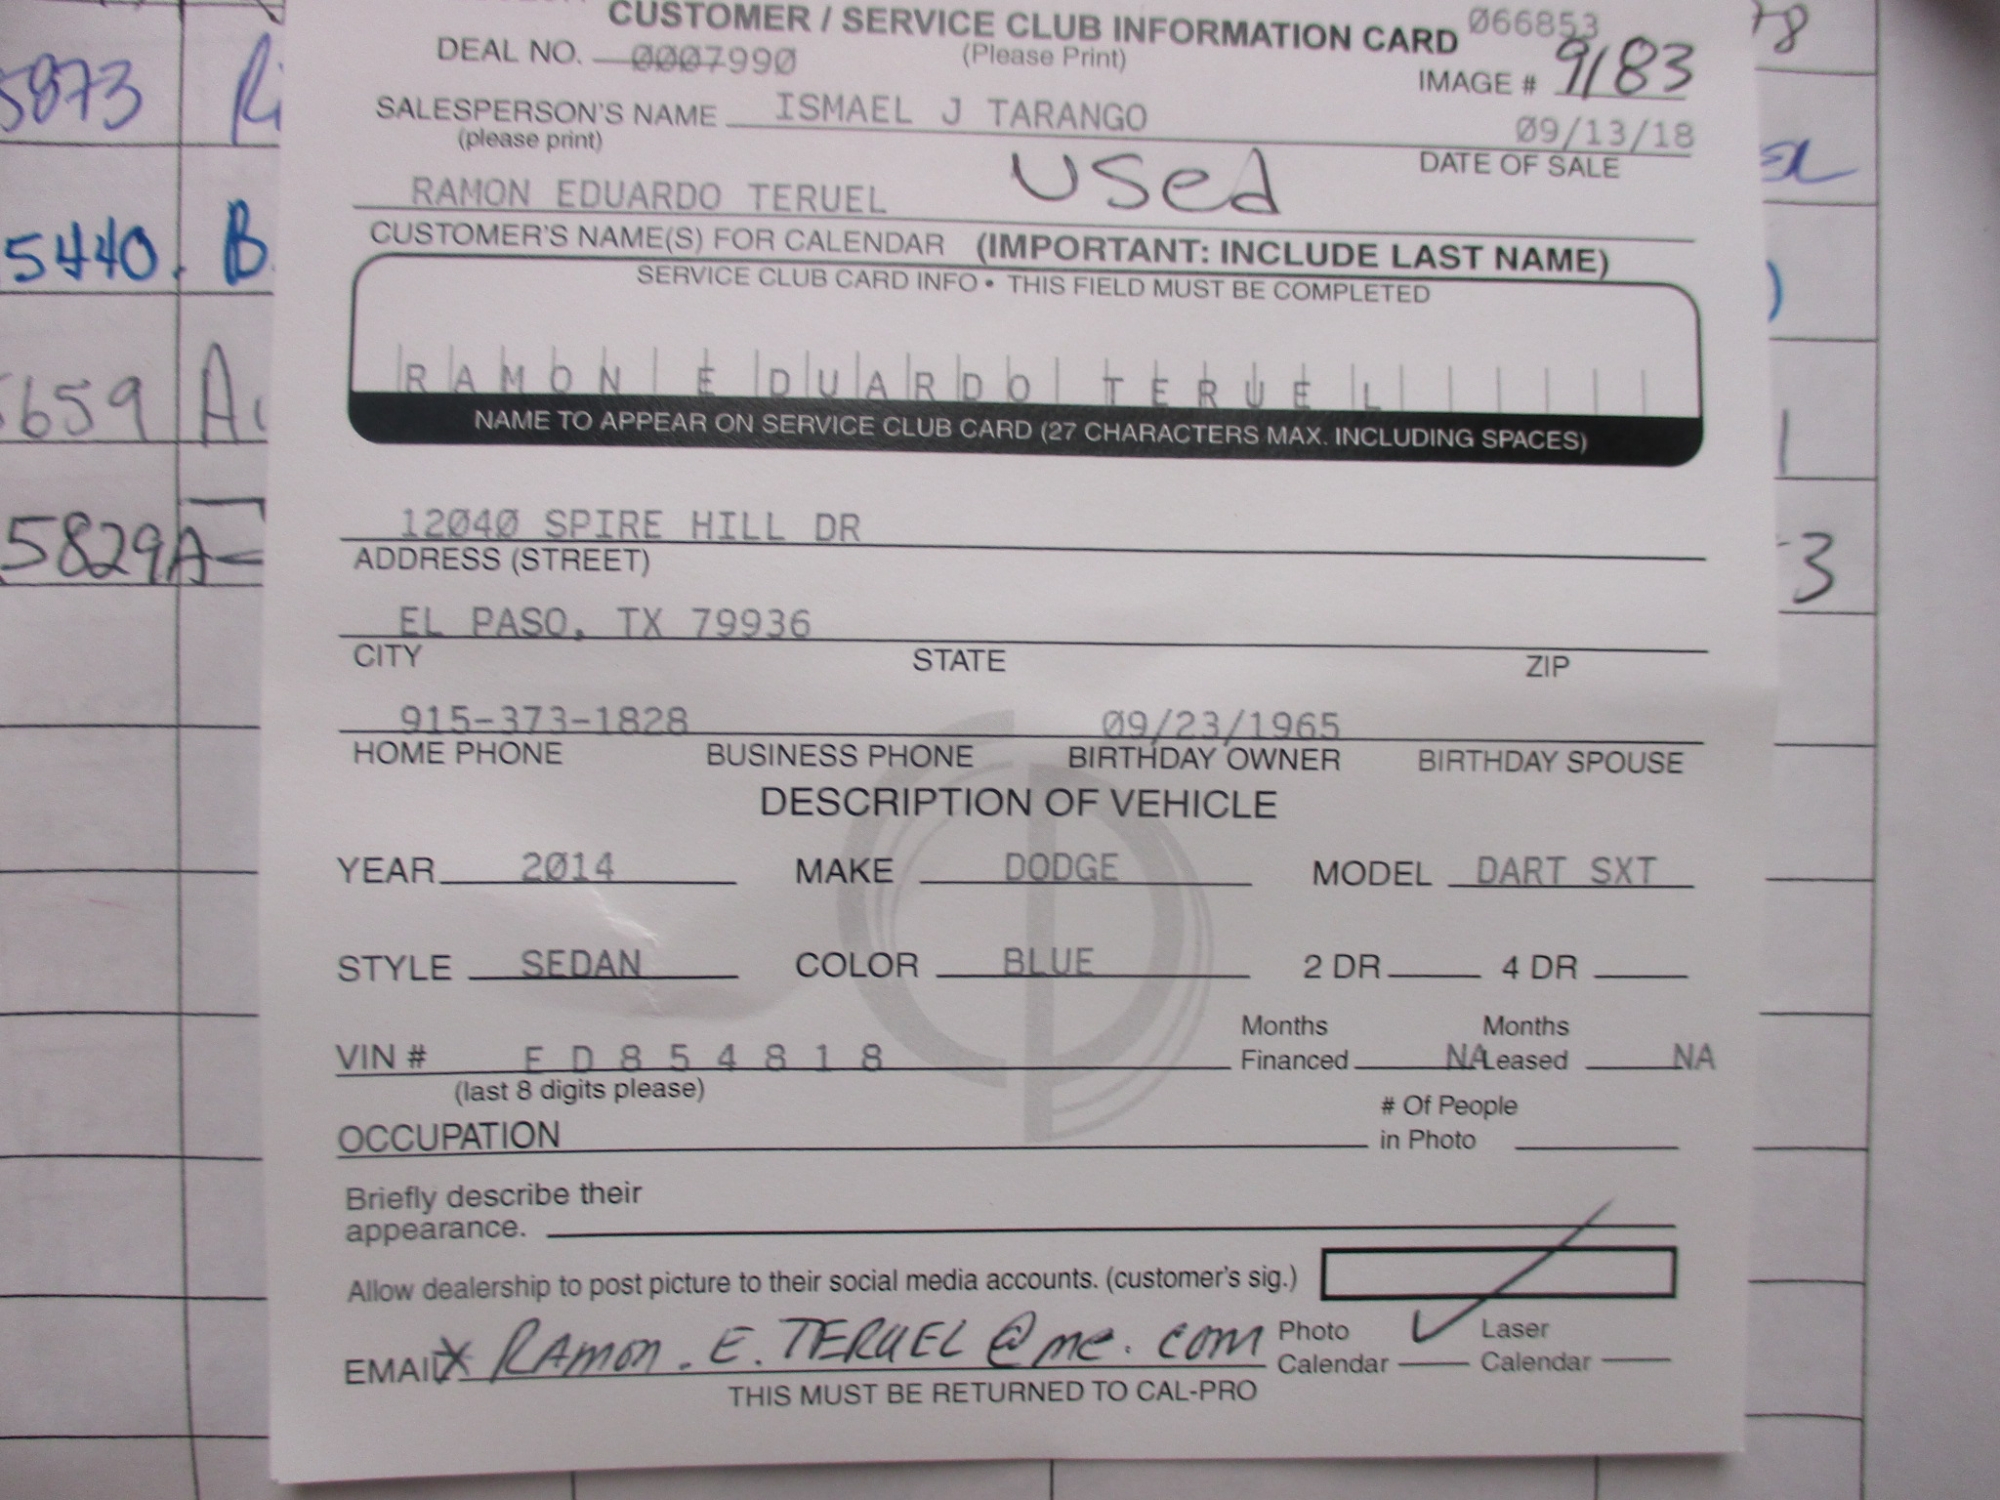 CUSTOMER / SERVICE CLUB INFORMATION CARD 066853
DEAL NO. 0007990 (Please Print) IMAGE # 9183
SALESPERSON'S NAME ISMAEL J TARANGO 09/13/18
(please print) DATE OF SALE
RAMON EDUARDO TERUEL Used
CUSTOMER'S NAME(S) FOR CALENDAR (IMPORTANT: INCLUDE LAST NAME)
SERVICE CLUB CARD INFO • THIS FIELD MUST BE COMPLETED
RAMON EDUARDO TERUEL
NAME TO APPEAR ON SERVICE CLUB CARD (27 CHARACTERS MAX. INCLUDING SPACES)
12040 SPIRE HILL DR
ADDRESS (STREET)
EL PASO, TX 79936
CITY STATE ZIP
915-373-1828 09/23/1965
HOME PHONE BUSINESS PHONE BIRTHDAY OWNER BIRTHDAY SPOUSE
DESCRIPTION OF VEHICLE
YEAR 2014 MAKE DODGE MODEL DART SXT
STYLE SEDAN COLOR BLUE 2 DR 4 DR
VIN # E D 8 5 4 8 1 8 Months Financed NA Months Leased NA
(last 8 digits please)
OCCUPATION # Of People in Photo
Briefly describe their
appearance.
Allow dealership to post picture to their social media accounts. (customer's sig.)
EMAIL X RAMON.E.TERUEL@me.com Photo Calendar ✓ Laser Calendar
THIS MUST BE RETURNED TO CAL-PRO
5873
5440
B
659
5829A
3